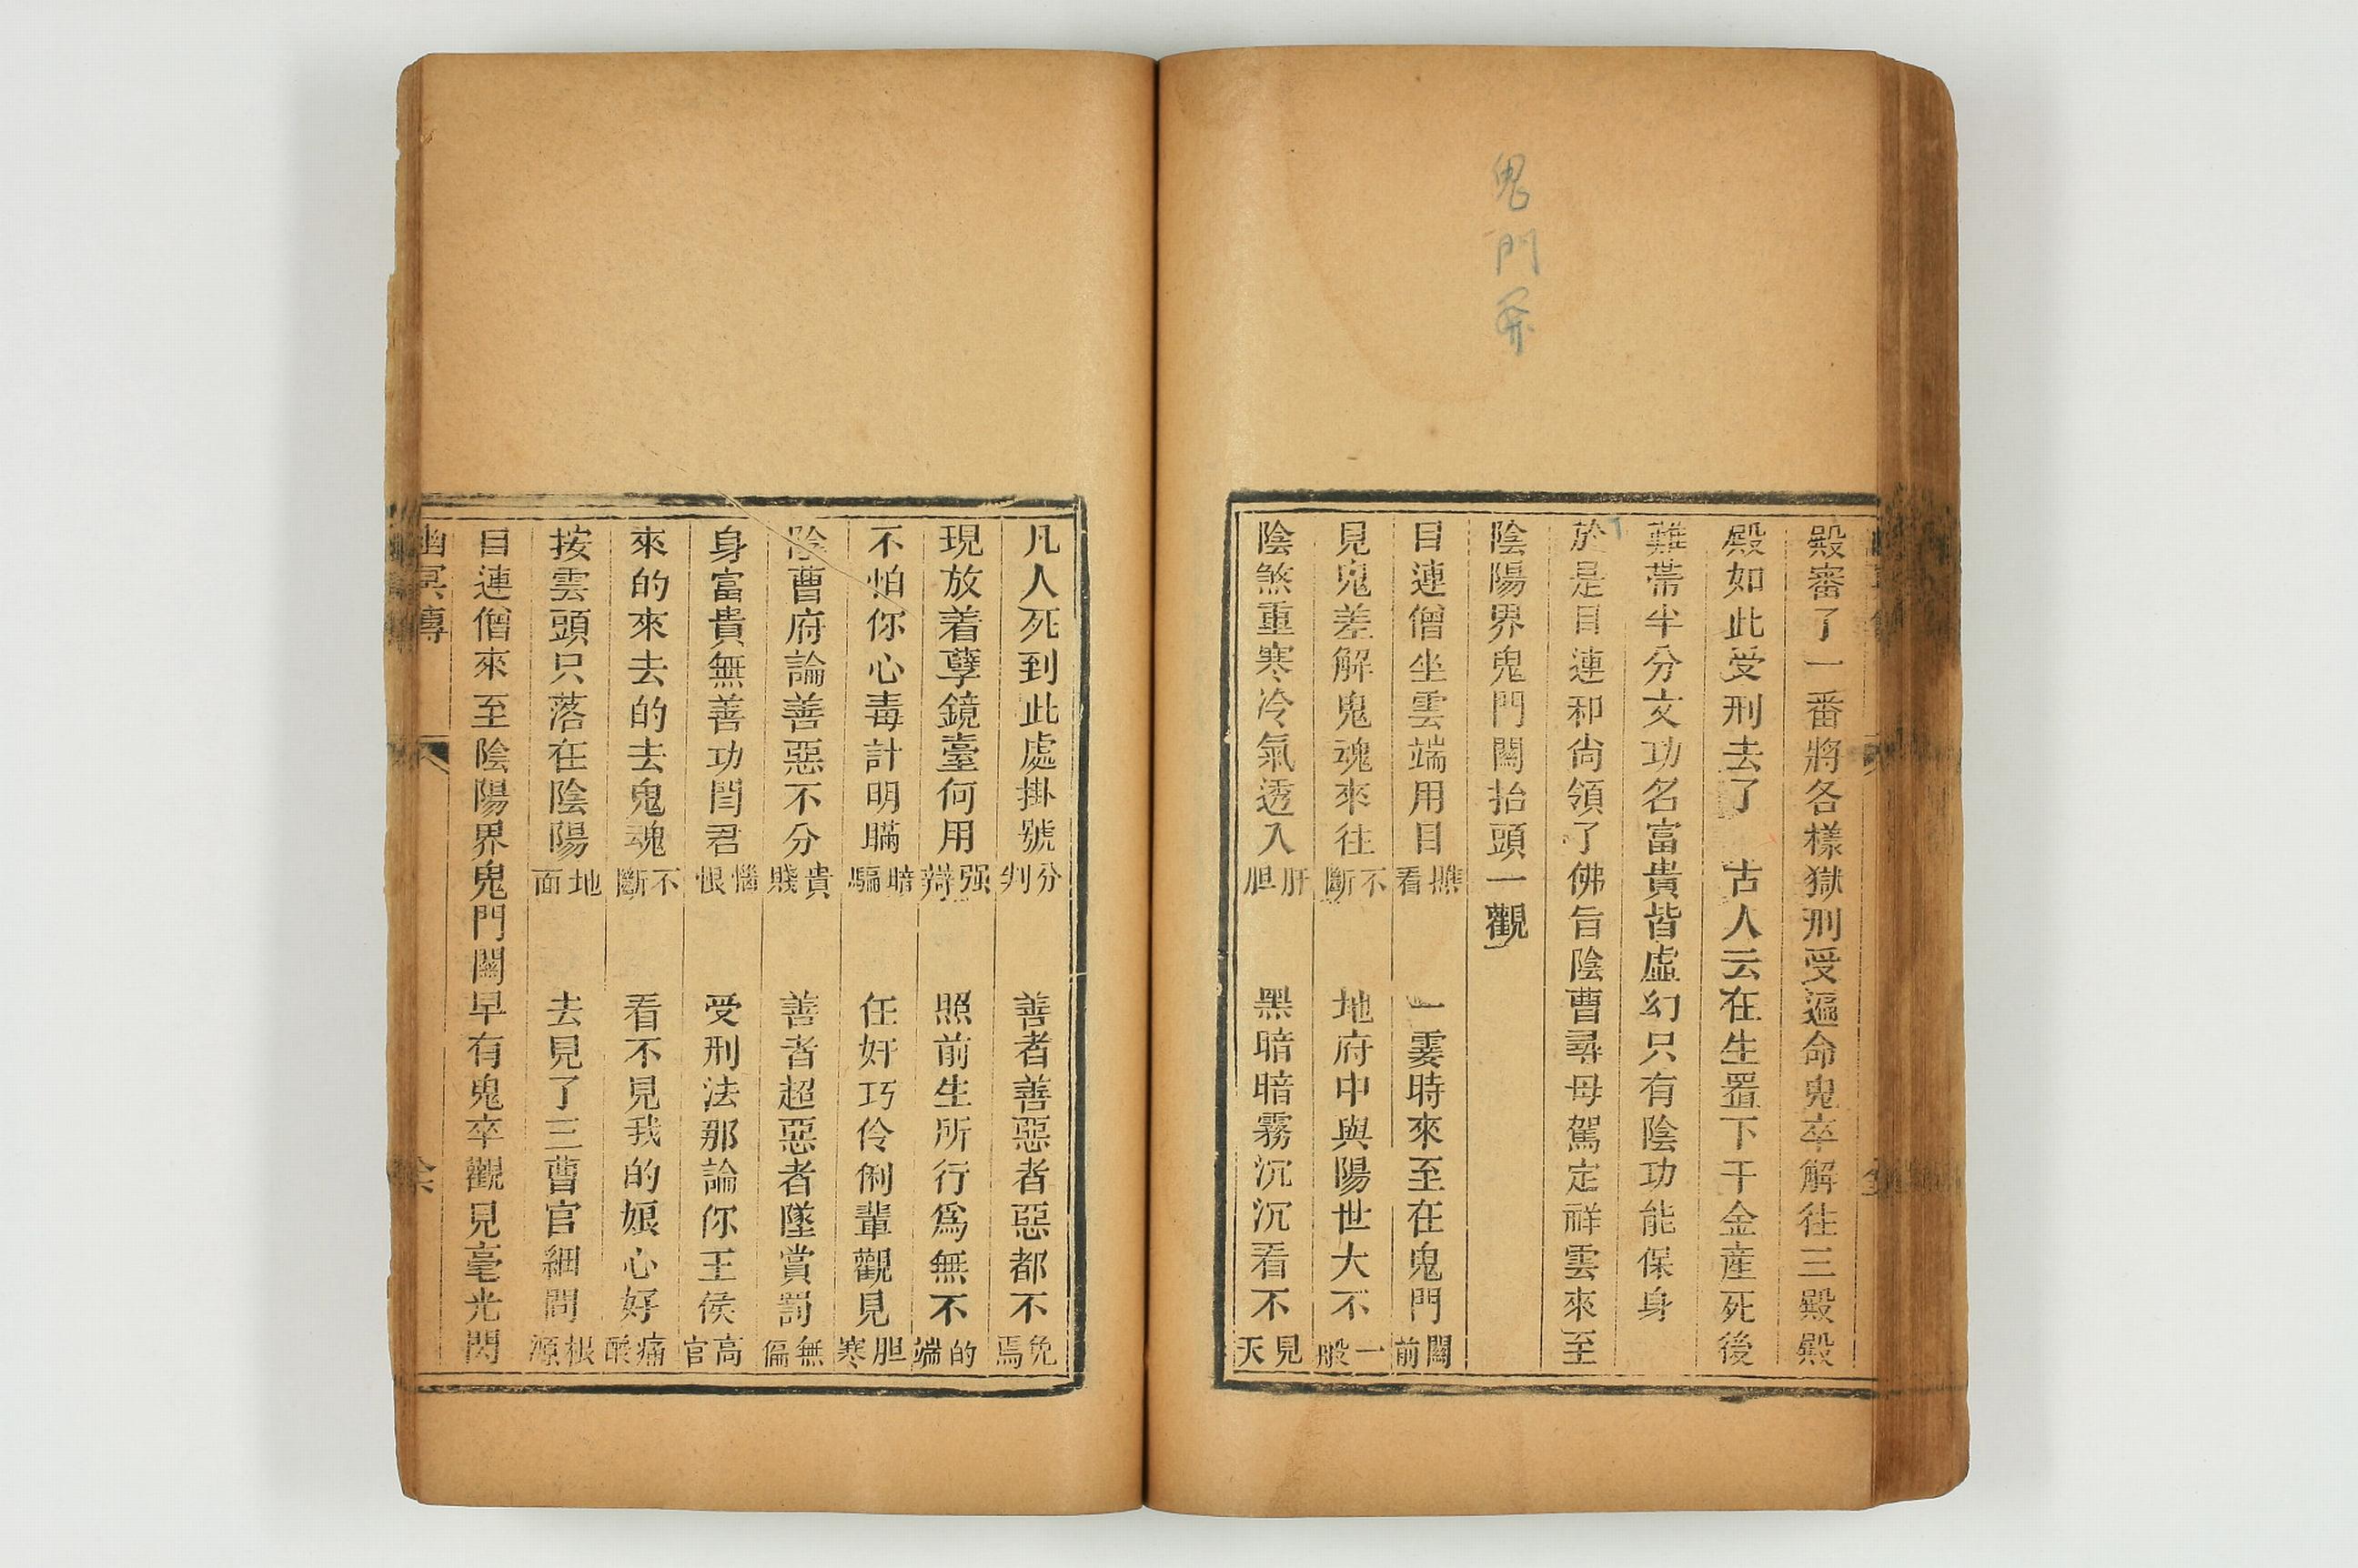 鬼門
殿審了一番將各樣獄刑受遍命鬼卒解往三殿殿
殿如此受刑去了　古人云在生置下千金產死後
難帶半分文功名富貴皆虛幻只有陰功能保身
於是目連和尚領了佛旨陰曹尋母駕定祥雲來至
陰陽界鬼門關抬頭一觀
目連僧坐雲端用目瞧看　一霎時來至在鬼門關前
見鬼差解鬼魂來往不斷　地府中與陽世大不一般
陰煞重寒冷氣透入肝胆　黑暗暗霧沉沉看不見天
凡人死到此處掛號分判　善者善惡者惡都不免焉
現放着孽鏡臺何用强辯　照前生所行爲無不的端
不怕你心毒計明瞞暗騙　任奸巧伶俐輩觀見胆寒
陰曹府論善惡不分貴賤　善者超惡者墜賞罰無偏
身富貴無善功閆君惱恨　受刑法那論你王侯高官
來的來去的去鬼魂不斷　看不見我的娘心好痛酸
按雲頭只落在陰陽地面　去見了三曹官細問根源
目連僧來至陰陽界鬼門關早有鬼卒觀見毫光閃
幽冥傳